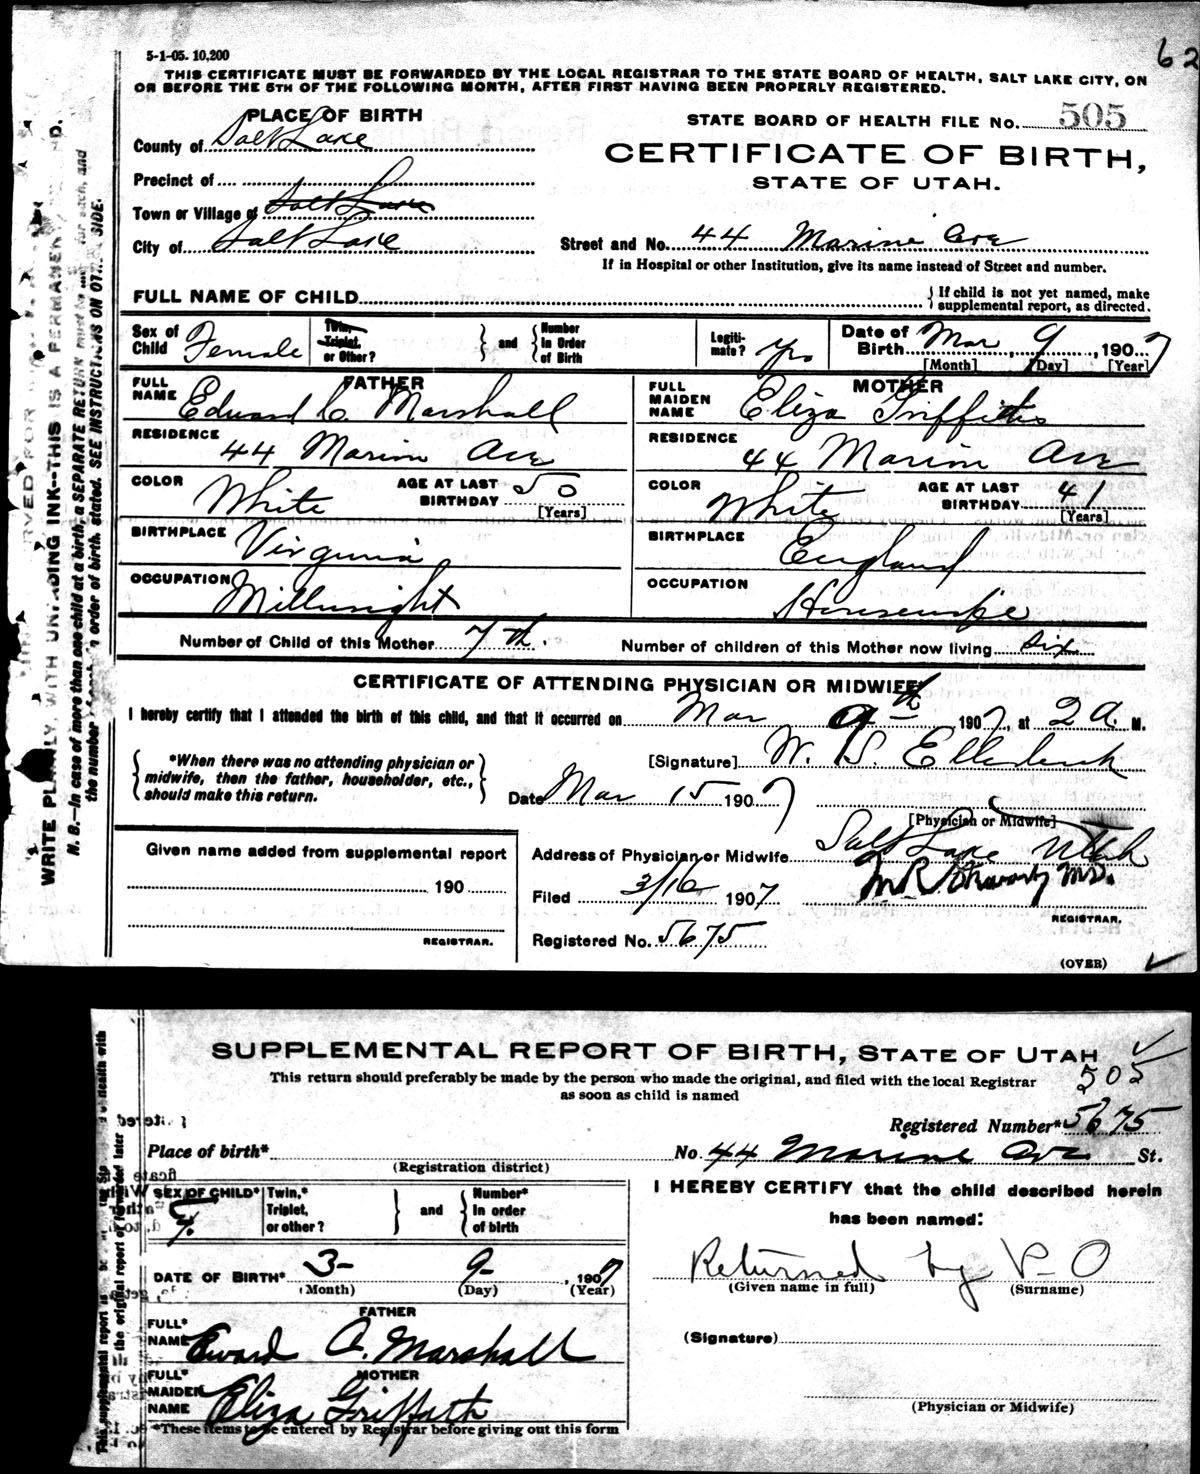 62
5-1-05. 10,200
THIS CERTIFICATE MUST BE FORWARDED BY THE LOCAL REGISTRAR TO THE STATE BOARD OF HEALTH, SALT LAKE CITY, ON
OR BEFORE THE 5TH OF THE FOLLOWING MONTH, AFTER FIRST HAVING BEEN PROPERLY REGISTERED.
PLACE OF BIRTH
STATE BOARD OF HEALTH FILE No. 505
County of Salt Lake
CERTIFICATE OF BIRTH,
STATE OF UTAH.
Precinct of
Town or Village of Salt Lake
City of Salt Lake
Street and No. 44 Marine Ave
If in Hospital or other Institution, give its name instead of Street and number.
FULL NAME OF CHILD
If child is not yet named, make
supplemental report, as directed.
Sex of Child Female
Twin, Triplet, or Other? and Number In Order of Birth
Legitimate? Yes
Date of Birth Mar 9, 1907
[Month] [Day] [Year]
FATHER
FULL NAME Edward C. Marshall
RESIDENCE 44 Marion Ave
COLOR White AGE AT LAST BIRTHDAY 50 [Years]
BIRTHPLACE Virginia
OCCUPATION Millwright
MOTHER
FULL MAIDEN NAME Eliza Griffiths
RESIDENCE 44 Marion Ave
COLOR White AGE AT LAST BIRTHDAY 41 [Years]
BIRTHPLACE England
OCCUPATION Housewife
Number of Child of this Mother 7th. Number of children of this Mother now living six
CERTIFICATE OF ATTENDING PHYSICIAN OR MIDWIFE*
I hereby certify that I attended the birth of this child, and that it occurred on Mar 9th 1907, at 2 A. M.
*When there was no attending physician or
midwife, then the father, householder, etc.,
should make this return.
[Signature] W. S.
Date Mar 15 1907
[Physician or Midwife]
Given name added from supplemental report
190
REGISTRAR.
Address of Physician or Midwife Salt Lake Utah
Filed 3/16 1907
M.D.
REGISTRAR.
Registered No. 5675
(OVER)
WRITE PLAINLY, WITH UNFADING INK--THIS IS A PERMANENT
N. B.--In case of more than one child at a birth, a SEPARATE RETURN must be for each, and
the number order of birth, stated. SEE INSTRUCTIONS ON OTHER SIDE.
SUPPLEMENTAL REPORT OF BIRTH, STATE OF UTAH
505
This return should preferably be made by the person who made the original, and filed with the local Registrar
as soon as child is named
Registered Number* 5675
Place of birth*
(Registration district)
No. 44 Marine Ave St.
SEX OF CHILD* F.
Twin,* Triplet, or other? and Number* In order of birth
I HEREBY CERTIFY that the child described herein
has been named:
DATE OF BIRTH* 3- 9- , 1907
(Month) (Day) (Year)
Returned by P-O
(Given name in full) (Surname)
FATHER
FULL* NAME Eward A. Marshall
(Signature)
MOTHER
FULL* MAIDEN NAME Eliza Griffath
(Physician or Midwife)
*These items to be entered by Registrar before giving out this form